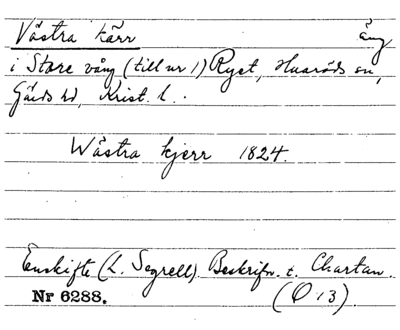 Västra kärr äng
i Store vång (till nr 1) Ryet, Huaröds sn,
Gärds hd, Krist. l.
Wästra kjerr 1824.
Enskifte (L. Segrell) Beskrifn. t. Chartan.
Nr 6288. (Ö 13)